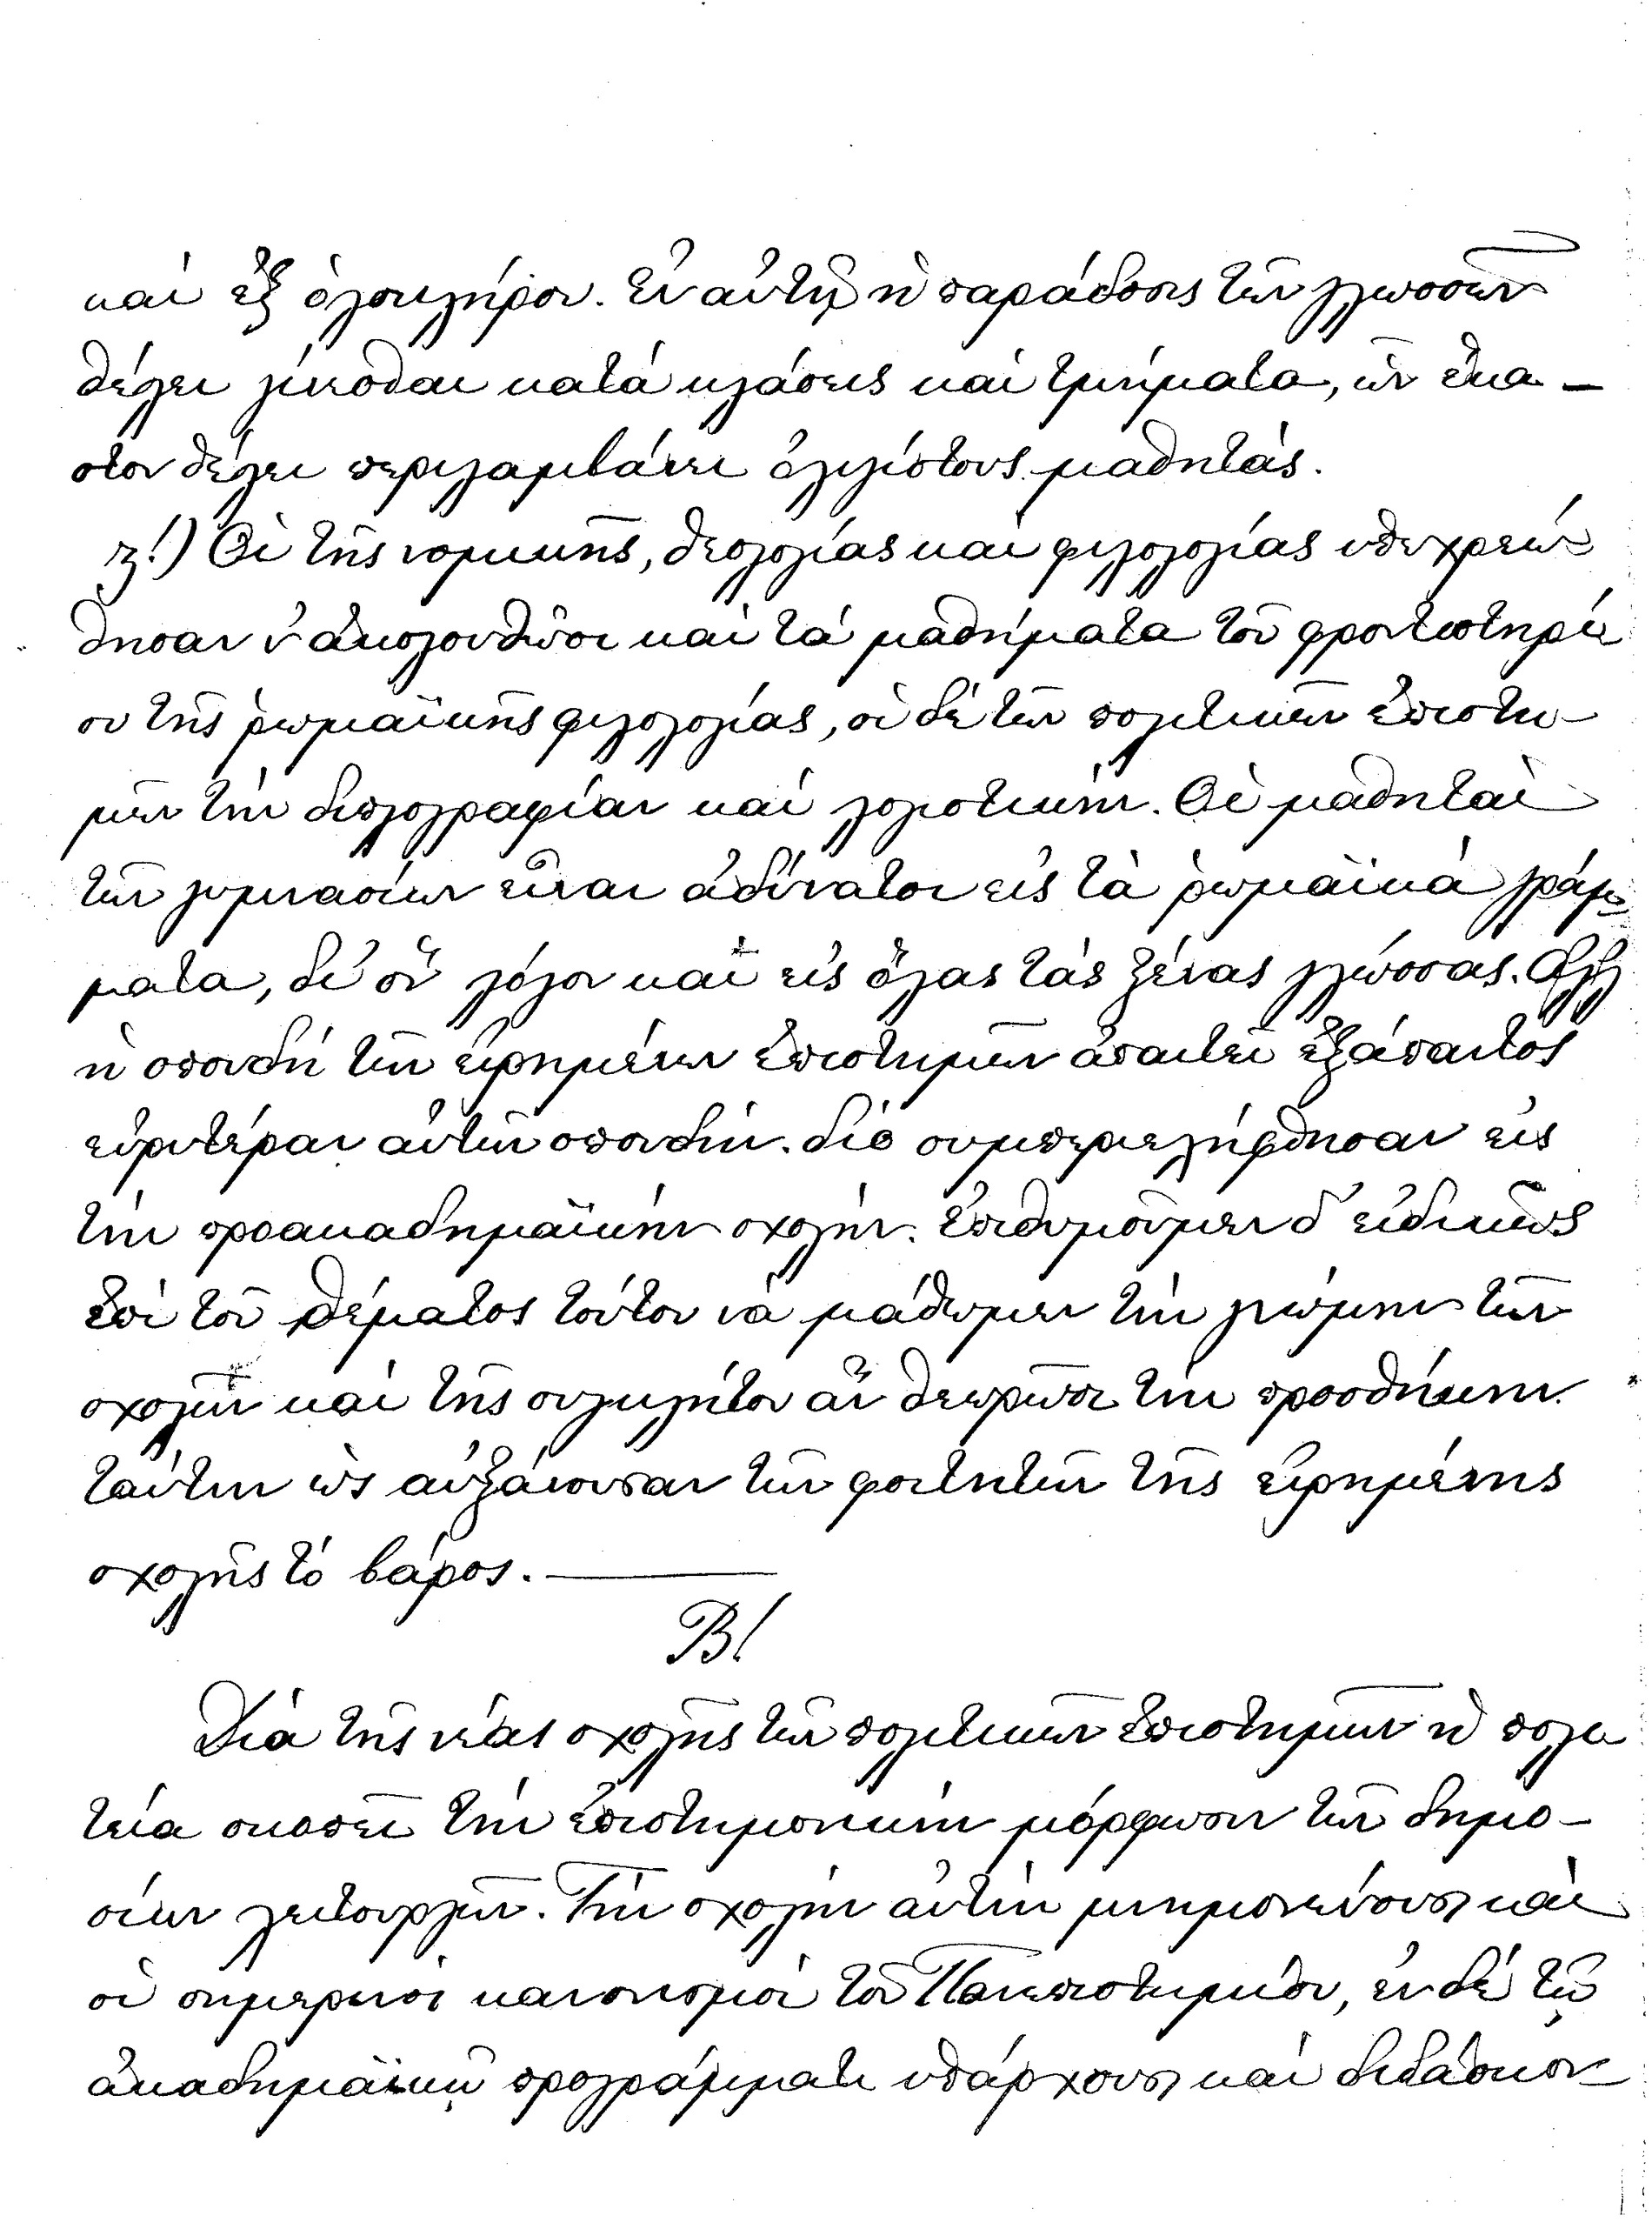 καὶ ἐξ ὁλοκλήρου. Ἐν αὐτῇ ἡ παράδοσις τῶν γλωσσῶν
θέλει γίνεσθαι κατὰ κλάσεις καὶ τμήματα, ὧν ἕκα-
στον θέλει περιλαμβάνει ὀλιγίστους μαθητάς.
ζ!) Οἱ τῆς νομικῆς, θεολογίας καὶ φιλολογίας ὑπεχρεώ-
θησαν ν' ἀκολουθῶσι καὶ τὰ μαθήματα τοῦ φροντιστηρί
ου τῆς ῥωμαϊκῆς φιλολογίας, οἱ δὲ τῶν πολιτικῶν ἐπιστη-
μῶν τὴν διπλογραφίαν καὶ λογιστικήν. Οἱ μαθηταὶ
τῶν γυμνασίων εἶναι ἀδύνατοι εἰς τὰ ῥωμαϊκὰ γράμ-
ματα, δι' ὃν λόγον καὶ εἰς ὅλας τὰς ξένας γλώσσας. Ἀλλ'
ἡ σπουδὴ τῶν εἰρημένων ἐπιστημῶν ἀπαιτεῖ ἐξάπαντος
εὐρυτέραν αὐτῶν σπουδήν. διὸ συμπεριελήφθησαν εἰς
τὴν προακαδημαϊκὴν σχολήν. Ἐπιθυμοῦμεν δ' εἰδικῶς
ἐπὶ τοῦ θέματος τούτου νὰ μάθωμεν τὴν γνώμην τῶν
σχολῶν καὶ τῆς συγκλήτου ἂν θεωρῶσι τὴν προσθήκην
ταύτην ὡς αὐξάνουσαν τῶν φοιτητῶν τῆς εἰρημένης
σχολῆς τὸ βάρος.
Β!
Διὰ τῆς νέας σχολῆς τῶν πολιτικῶν ἐπιστημῶν ἡ πολι
τεία σκοπεῖ τὴν ἐπιστημονικὴν μόρφωσιν τῶν δημο-
σίων λειτουργῶν. Τὴν σχολὴν αὐτὴν μνημονεύουσι καὶ
οἱ σημερινοὶ κανονισμοὶ τοῦ Πανεπιστημίου, ἐν δὲ τῷ
ἀκαδημαϊκῷ προγράμματι ὑπάρχουσι καὶ διδάσκον-